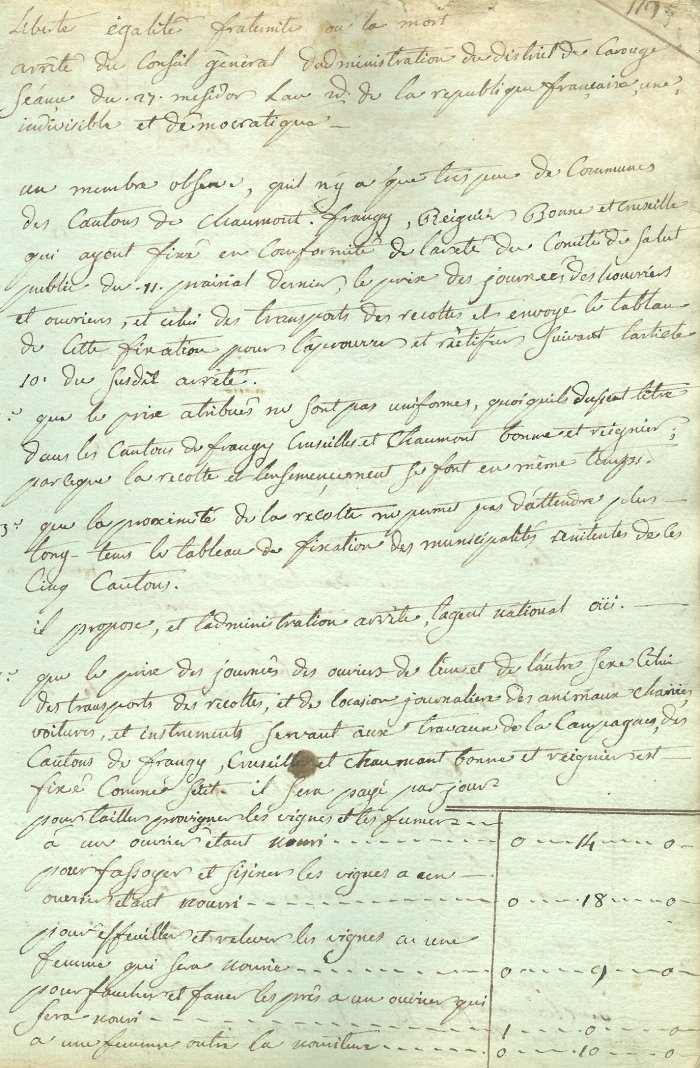 119
Liberté égalité fraternité ou la mort
arrêté du Conseil général d'administration du district de Carouge
Séance du 27. messidor L'an 2d. de la republique française, une,
indivisible et démocratique
un membre observe, qu'il n'y a que tres peu de Communes
des Cantons de Chaumont. frangy, Reignier Bonne et Cruseille
qui ayent fixé en Conformité de l'arreté du Comité de Salut
public du 11. prairial dernier, le prix des journées des
et ouvriers, et celui des transports des recoltes et envoyé le tableau
de cette fixation pour l'aprouver et rectifier suivant l'article
10. du susdit arrêté.
que le prix atribués ne sont pas uniformes, quoiqu'ils dussent l'être
dans les Cantons de frangy Cruseilles et Chaumont bonne et reignier;
parceque la recolte et l'ensemencement se font en même temps.
3° que la proximité de la récolte ne permet pas d'attendre plus
long-tems le tableau de fixation des municipalités renitentes de ces
Cinq Cantons.
il propose, et l'administration arrête, l'agent national oüi.
que le prix des journés des ouviers de l'un et de l'autre sexe Celui
des transports des récoltes, et de locasion journaliere des animaux charües,
voitures, et instruments servant aux travaux de la Campagne, des
Cantons de frangy, Cruseilles et chaumont bonne et reignier est
fixé Comme suit. il sera payé par jour
pour tailler provigner les vignes et les fumer
à un ouvrier étant nourri 0 14 0
pour fassoyer et bisiner les vignes a un
ouvrier étant nourri 0 18 0
pour effeuiller et relever les vignes a une
femme qui sera nourie 0 9 0
pour faucher et faner les prés a un ouvrier qui
sera nouri 1 0 0
a une femme outre la nouriture 0 10 0